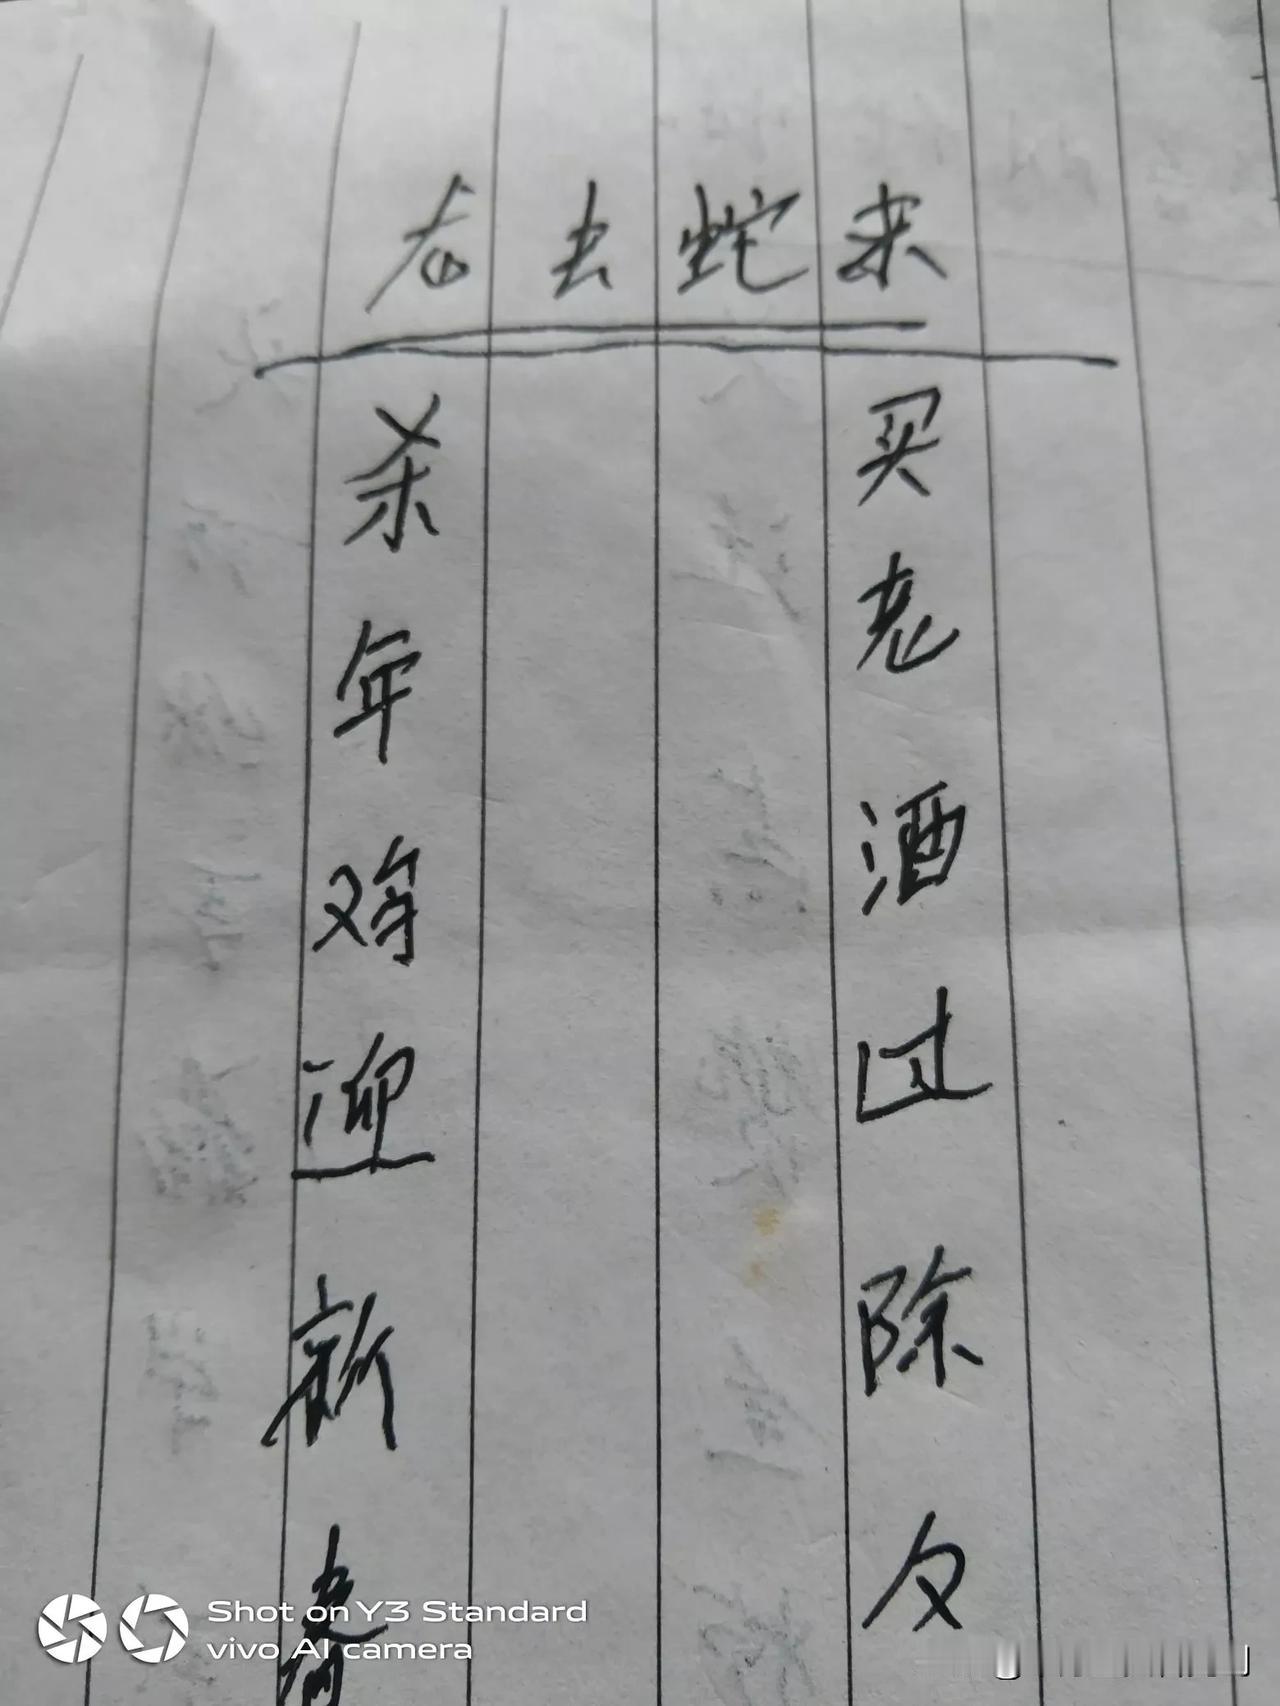 龙去蛇来
买老酒过除夕
杀年鸡迎新春
Shot on Y3 Standard
vivo AI camera